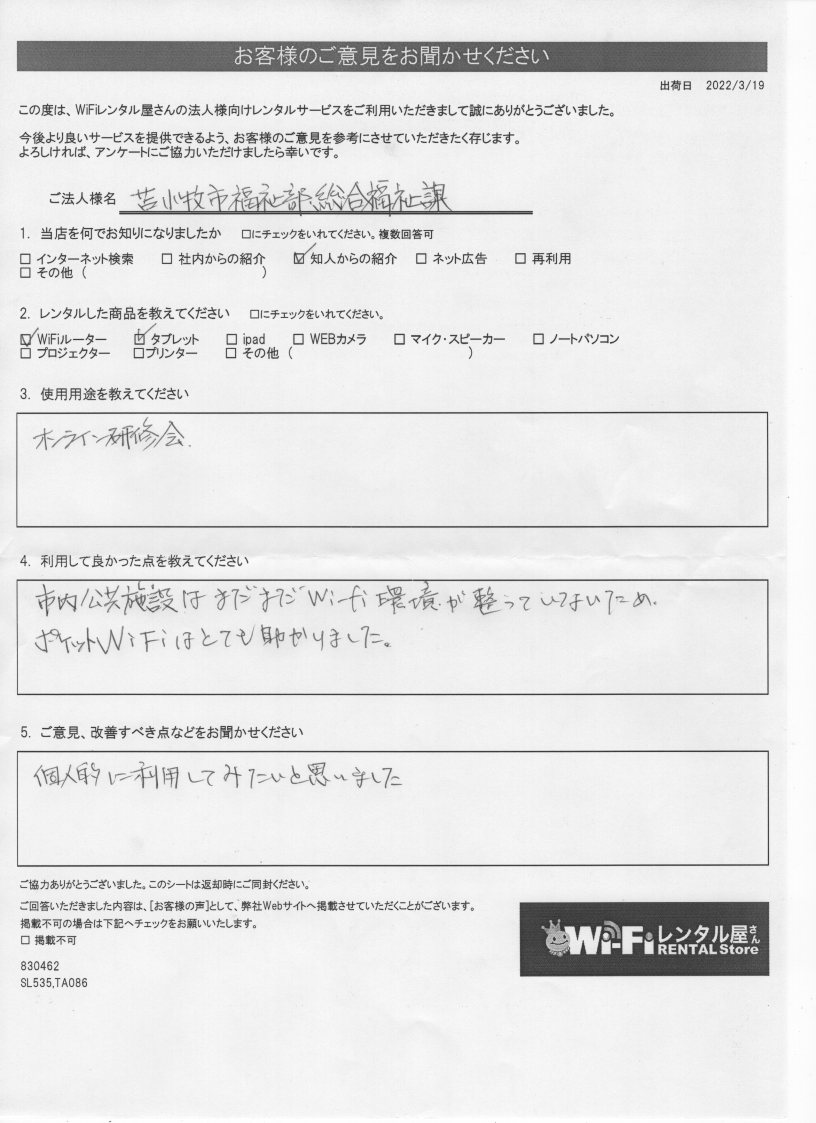 お客様のご意見をお聞かせください
出荷日 2022/3/19
この度は、WiFiレンタル屋さんの法人様向けレンタルサービスをご利用いただきまして誠にありがとうございました。
今後より良いサービスを提供できるよう、お客様のご意見を参考にさせていただきたく存じます。
よろしければ、アンケートにご協力いただけましたら幸いです。
ご法人様名 苫小牧市福祉部総合福祉課
1. 当店を何でお知りになりましたか □にチェックをいれてください。複数回答可
□ インターネット検索 □ 社内からの紹介 ☑ 知人からの紹介 □ ネット広告 □ 再利用
□ その他 ( )
2. レンタルした商品を教えてください □にチェックをいれてください。
☑ WiFiルーター ☑ タブレット □ ipad □ WEBカメラ □ マイク・スピーカー □ ノートパソコン
□ プロジェクター □プリンター □ その他 ( )
3. 使用用途を教えてください
オンライン研修会.
4. 利用して良かった点を教えてください
市内公共施設はまだまだWi-fi環境が整っていないため、
ポケットWiFiはとても助かりました。
5. ご意見、改善すべき点などをお聞かせください
個人的に利用してみたいと思いました
ご協力ありがとうございました。このシートは返却時にご同封ください。
ご回答いただきました内容は、[お客様の声]として、弊社Webサイトへ掲載させていただくことがございます。
掲載不可の場合は下記へチェックをお願いいたします。
□ 掲載不可
830462
SL535,TA086
Wi-Fiレンタル屋さん
RENTAL Store